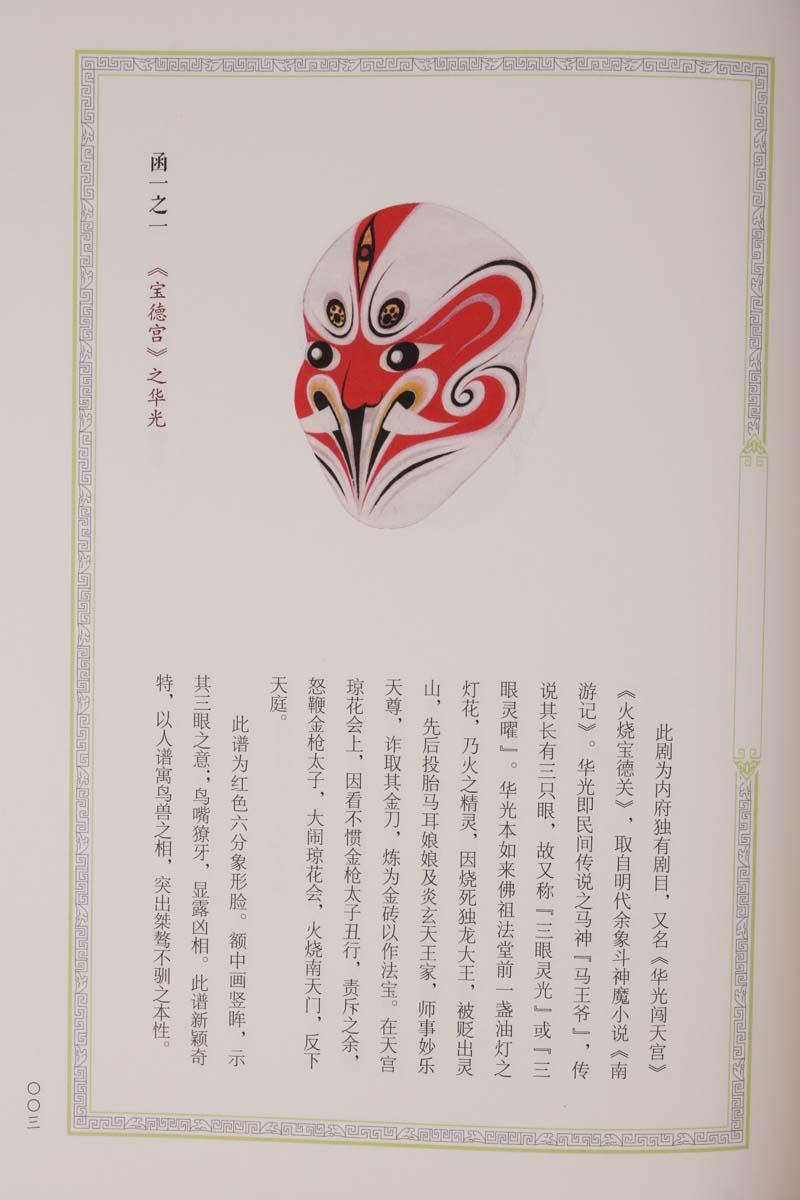 函一之一 《宝德宫》之华光
此剧为内府独有剧目，又名《华光闯天宫》
《火烧宝德关》，取自明代余象斗神魔小说《南
游记》。华光即民间传说之马神『马王爷』，传
说其长有三只眼，故又称『三眼灵光』或『三
眼灵曜』。华光本如来佛祖法堂前一盏油灯之
灯花，乃火之精灵，因烧死独龙大王，被贬出灵
山，先后投胎马耳娘娘及炎玄天王家，师事妙乐
天尊，诈取其金刀，炼为金砖以作法宝。在天宫
琼花会上，因看不惯金枪太子丑行，责斥之余，
怒鞭金枪太子，大闹琼花会，火烧南天门，反下
天庭。
此谱为红色六分象形脸。额中画竖眸，示
其三眼之意；鸟嘴獠牙，显露凶相。此谱新颖奇
特，以人谱寓鸟兽之相，突出桀骜不驯之本性。
〇〇三